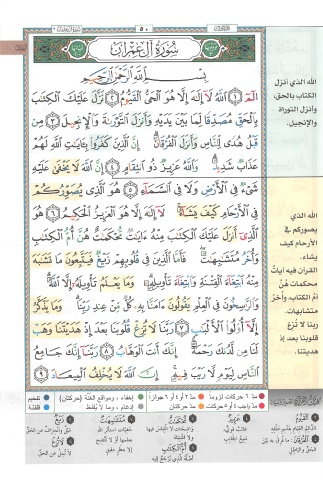 ٥٠
سُورَةُ آلِ عِمْرَان
بِسْمِ ٱللَّهِ ٱلرَّحْمَٰنِ ٱلرَّحِيمِ
الٓمٓ ١ ٱللَّهُ لَآ إِلَٰهَ إِلَّا هُوَ ٱلْحَىُّ ٱلْقَيُّومُ ٢ نَزَّلَ عَلَيْكَ ٱلْكِتَٰبَ
بِٱلْحَقِّ مُصَدِّقًا لِّمَا بَيْنَ يَدَيْهِ وَأَنزَلَ ٱلتَّوْرَىٰةَ وَٱلْإِنجِيلَ ٣ مِن
قَبْلُ هُدًى لِّلنَّاسِ وَأَنزَلَ ٱلْفُرْقَانَ إِنَّ ٱلَّذِينَ كَفَرُوا۟ بِـَٔايَٰتِ ٱللَّهِ لَهُمْ
عَذَابٌ شَدِيدٌ وَٱللَّهُ عَزِيزٌ ذُو ٱنتِقَامٍ ٤ إِنَّ ٱللَّهَ لَا يَخْفَىٰ عَلَيْهِ
شَىْءٌ فِى ٱلْأَرْضِ وَلَا فِى ٱلسَّمَآءِ ٥ هُوَ ٱلَّذِى يُصَوِّرُكُمْ
فِى ٱلْأَرْحَامِ كَيْفَ يَشَآءُ لَآ إِلَٰهَ إِلَّا هُوَ ٱلْعَزِيزُ ٱلْحَكِيمُ ٦ هُوَ
ٱلَّذِىٓ أَنزَلَ عَلَيْكَ ٱلْكِتَٰبَ مِنْهُ ءَايَٰتٌ مُّحْكَمَٰتٌ هُنَّ أُمُّ ٱلْكِتَٰبِ
وَأُخَرُ مُتَشَٰبِهَٰتٌ فَأَمَّا ٱلَّذِينَ فِى قُلُوبِهِمْ زَيْغٌ فَيَتَّبِعُونَ مَا تَشَٰبَهَ
مِنْهُ ٱبْتِغَآءَ ٱلْفِتْنَةِ وَٱبْتِغَآءَ تَأْوِيلِهِۦ وَمَا يَعْلَمُ تَأْوِيلَهُۥٓ إِلَّا ٱللَّهُ
وَٱلرَّٰسِخُونَ فِى ٱلْعِلْمِ يَقُولُونَ ءَامَنَّا بِهِۦ كُلٌّ مِّنْ عِندِ رَبِّنَا وَمَا يَذَّكَّرُ
إِلَّآ أُو۟لُوا۟ ٱلْأَلْبَٰبِ ٧ رَبَّنَا لَا تُزِغْ قُلُوبَنَا بَعْدَ إِذْ هَدَيْتَنَا وَهَبْ
لَنَا مِن لَّدُنكَ رَحْمَةً إِنَّكَ أَنتَ ٱلْوَهَّابُ ٨ رَبَّنَآ إِنَّكَ جَامِعُ
ٱلنَّاسِ لِيَوْمٍ لَّا رَيْبَ فِيهِ إِنَّ ٱللَّهَ لَا يُخْلِفُ ٱلْمِيعَادَ ٩
الله الذي أنزل
الكتاب بالحق،
وأنزل التوراة
والإنجيل.
الله الذي
يصوركم في
الأرحام كيف
يشاء.
القرآن فيه آيات
محكمات هُنّ
أمّ الكتاب، وأُخَر
متشابهات.
ربنا لا تُزغ
قلوبنا بعد إذ
هديتنا.
مدّ ٦ حركات لزوماً
مدّ ٢ أو ٤ أو ٦ جوازاً
إخفاء، ومواقع الغُنَّة (حركتان)
تفخيم
مدّ حركتان
إدغام، وما لا يُلفظ
قلقلة